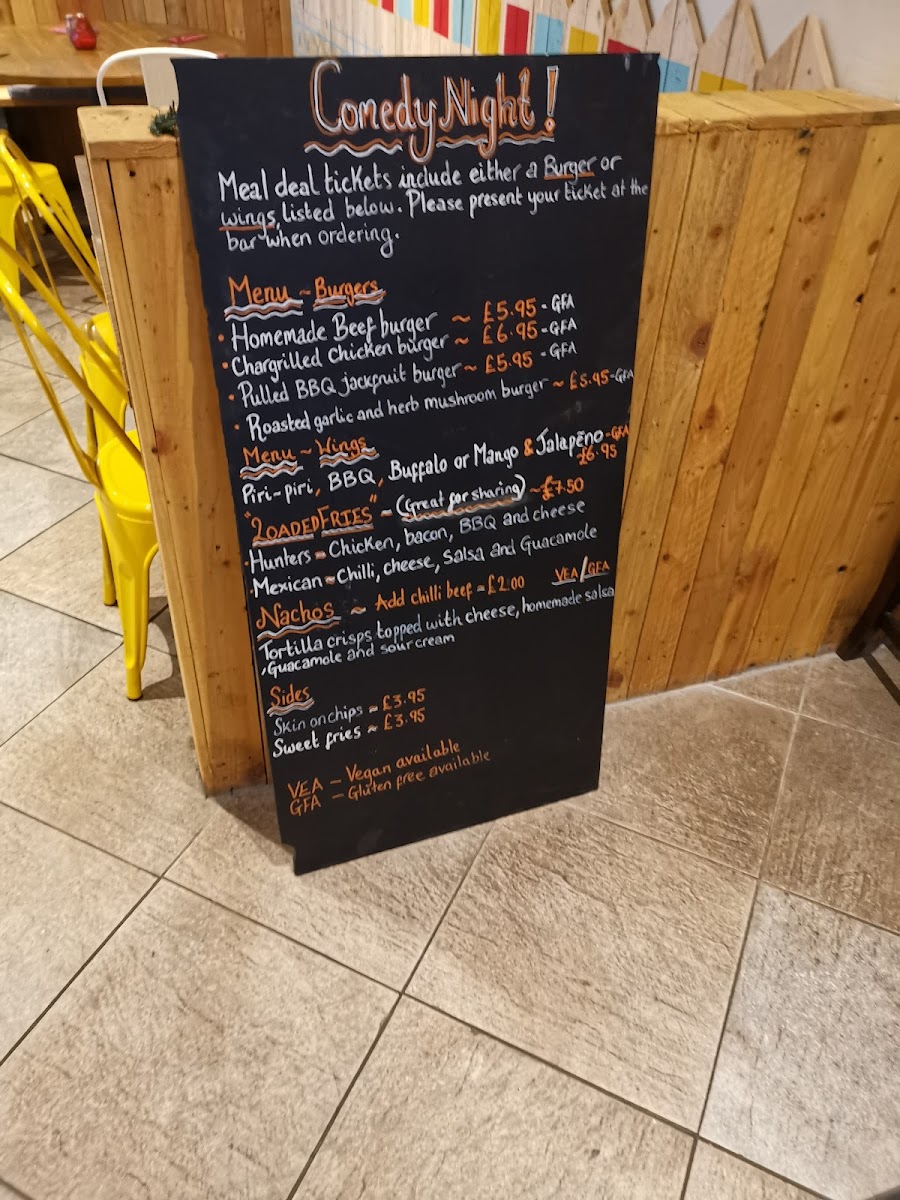 Comedy Night!
Meal deal tickets include either a Burger or
wings, listed below. Please present your ticket at the
bar when ordering.
Menu ~ Burgers
• Homemade Beef burger ~ £5.95 - GFA
• Chargrilled chicken burger ~ £6.95 - GFA
• Pulled BBQ jackfruit burger ~ £5.95 - GFA
• Roasted garlic and herb mushroom burger ~ £5.95 - GFA
Menu ~ Wings
Piri-piri, BBQ, Buffalo or Mango & Jalapeño - GFA
£6.95
"LOADED FRIES" ~ (Great for sharing) ~ £7.50
• Hunters = Chicken, bacon, BBQ and cheese
• Mexican = Chilli, cheese, salsa and Guacamole
Nachos ~ Add chilli beef = £2.00 VEA/GFA
Tortilla crisps topped with cheese, homemade salsa
, Guacamole and sour cream
Sides
Skin on chips ~ £3.95
Sweet fries ~ £3.95
VEA - Vegan available
GFA - Gluten free available